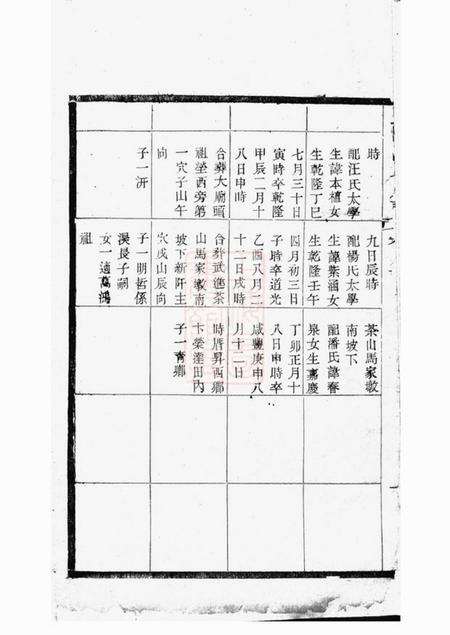 時
配汪氏太學
生諱本植女
生乾隆丁巳
七月三十日
寅時卒乾隆
甲辰二月十
八日申時
合葬大廟頭
祖塋西旁第
一穴子山午
向
子一沂
九日辰時
配楊氏太學
生諱葉涵女
生乾隆壬午
四月初三日
子時卒道光
乙酉八月二
十二日戌時
合葬武進茶
山馬家墩南
坡下新阡主
穴戌山辰向
子一明哲係
漢良子嗣
女一適萬鴻
祖
茶山馬家墩
南坡下
配潘氏諱春
泉女生嘉慶
丁卯正月十
八日申時卒
咸豐庚申八
月十二日
時厝昇西鄉
卞榮達田內
子一育鄉